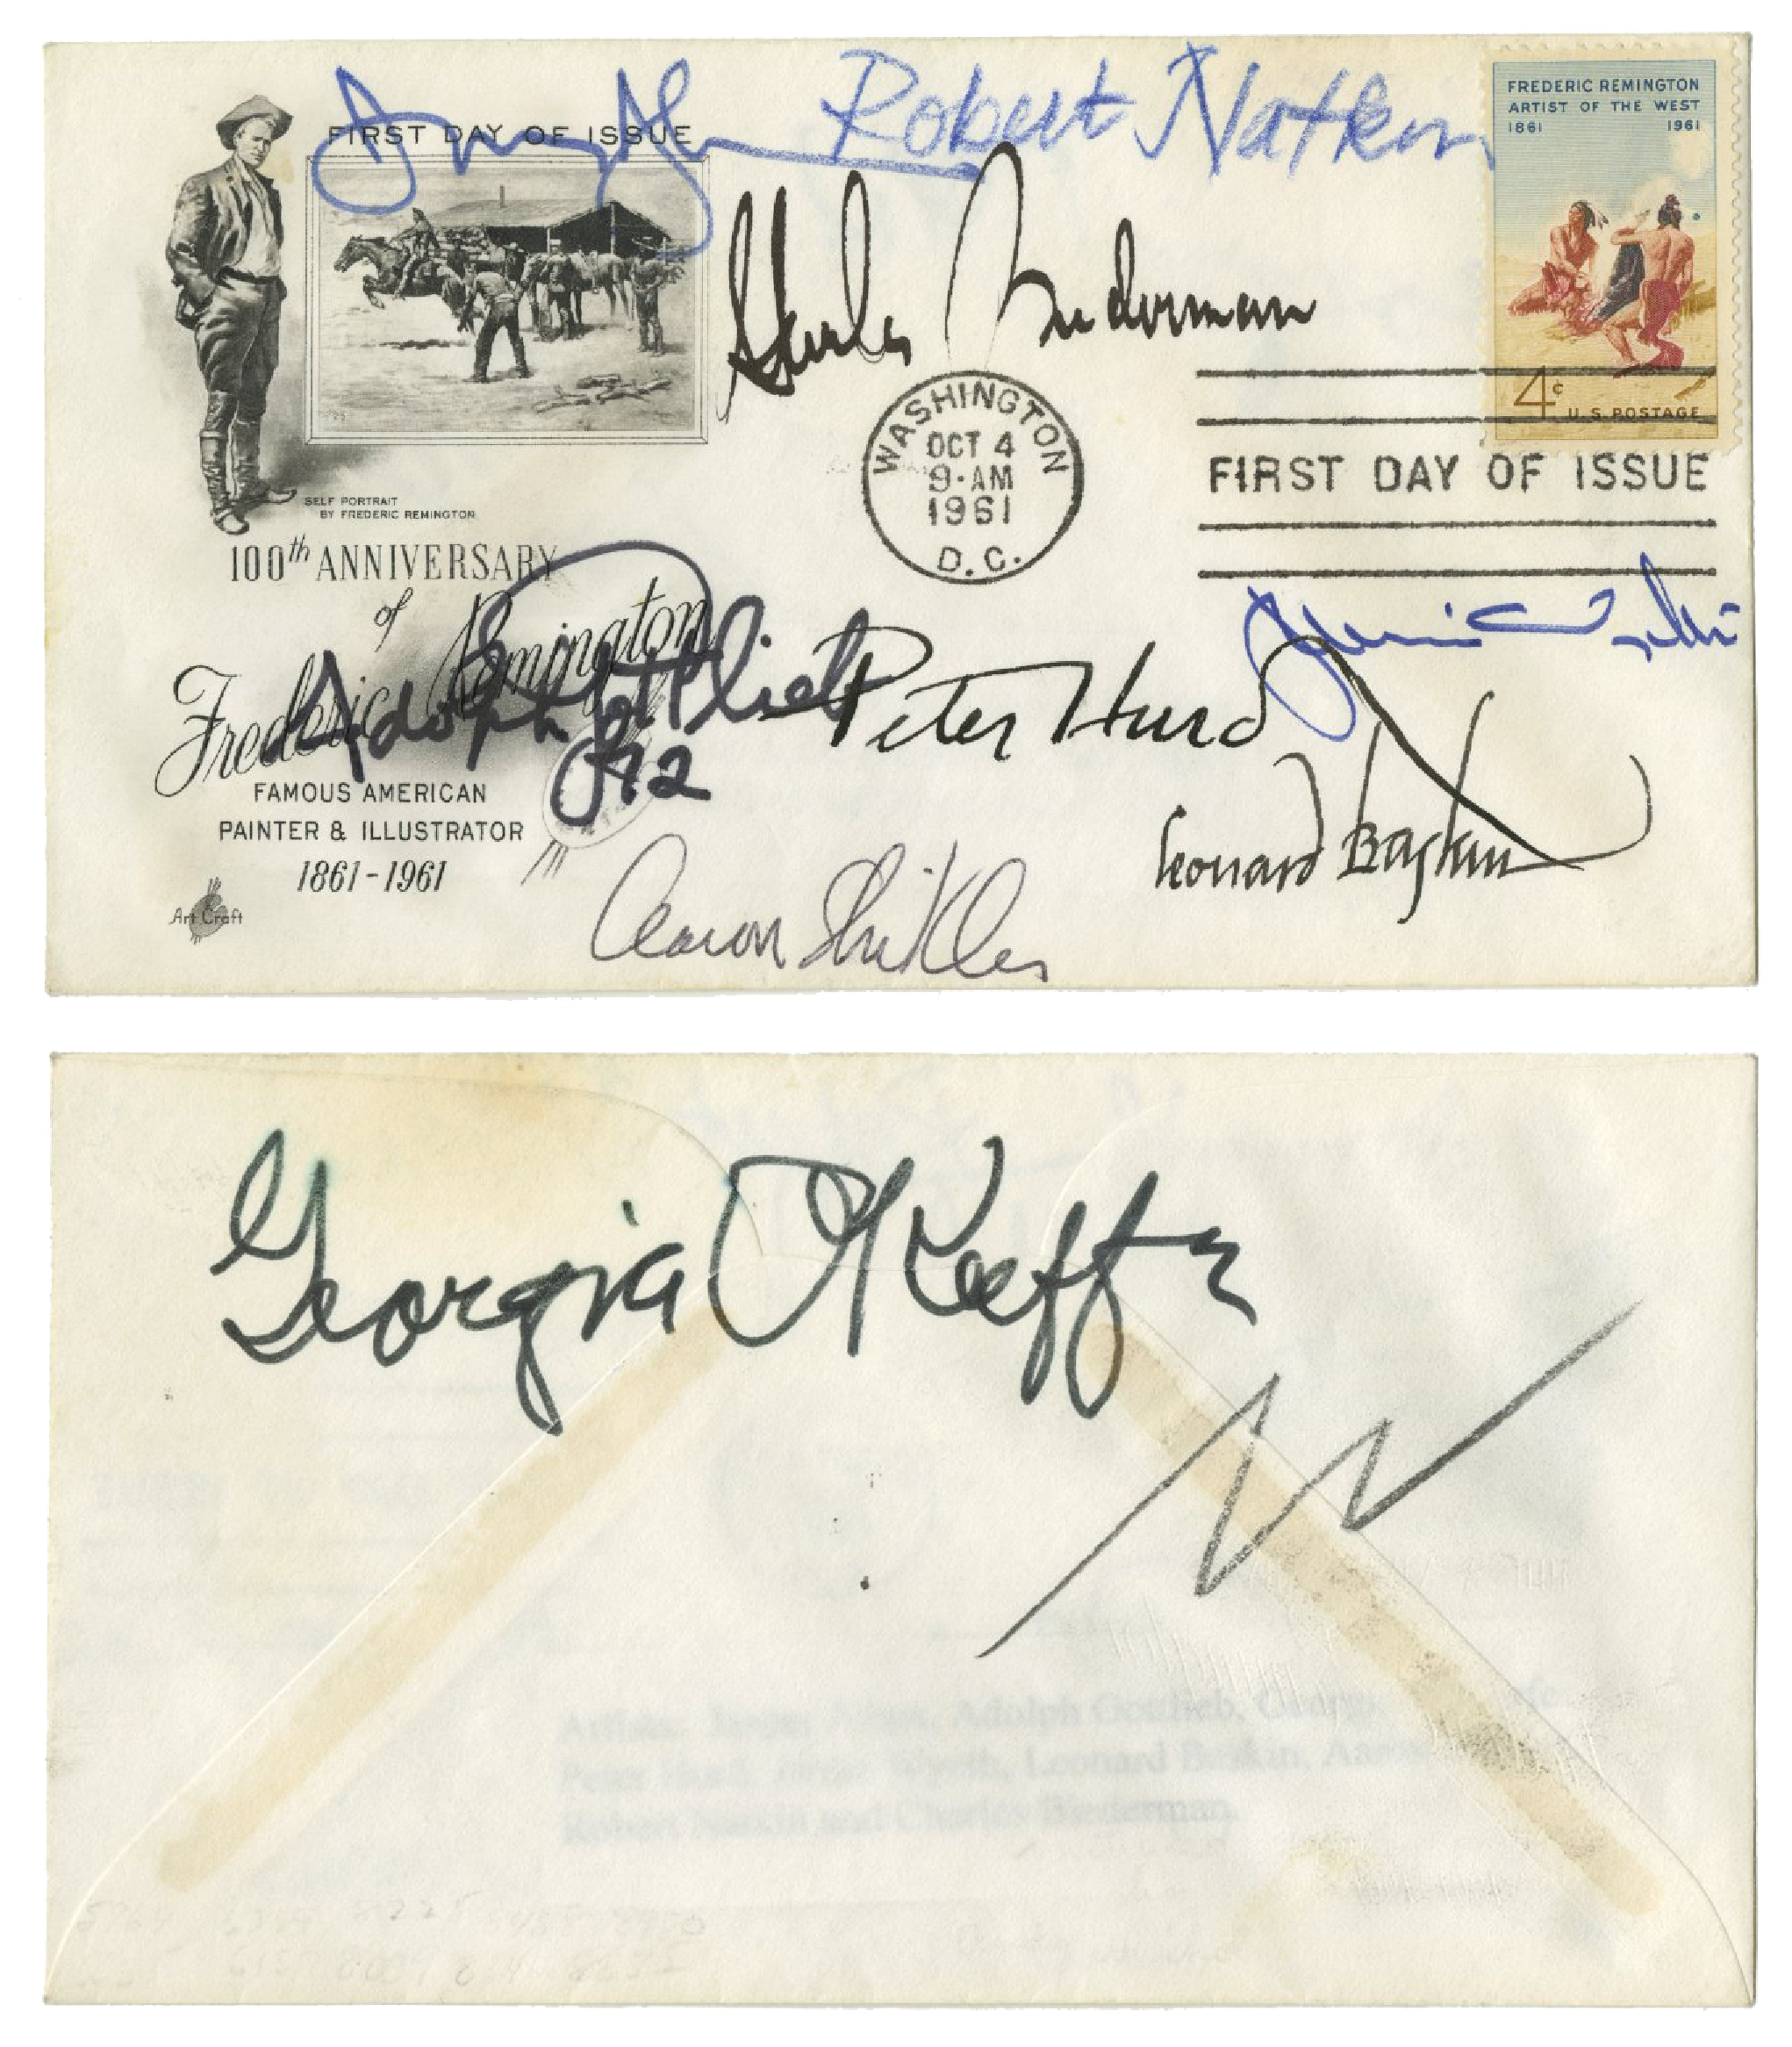 Robert Natkin
FIRST DAY OF ISSUE
FREDERIC REMINGTON
ARTIST OF THE WEST
1861 1961
4c U.S. POSTAGE
WASHINGTON
OCT 4
9-AM
1961
D.C.
FIRST DAY OF ISSUE
SELF PORTRAIT
BY FREDERIC REMINGTON
100th ANNIVERSARY
of
Frederic Remington
FAMOUS AMERICAN
PAINTER & ILLUSTRATOR
1861-1961
Art Craft
Charles Biederman
Adolph Gottlieb
Peter Hurd
Leonard Baskin
Aaron Shikler
Georgia O'Keeffe
Adolph Gottlieb, Georgi
Peter Hurd, Wyeth, Leonard Baskin, Aaron
Robert Natkin and Charles Biederman.